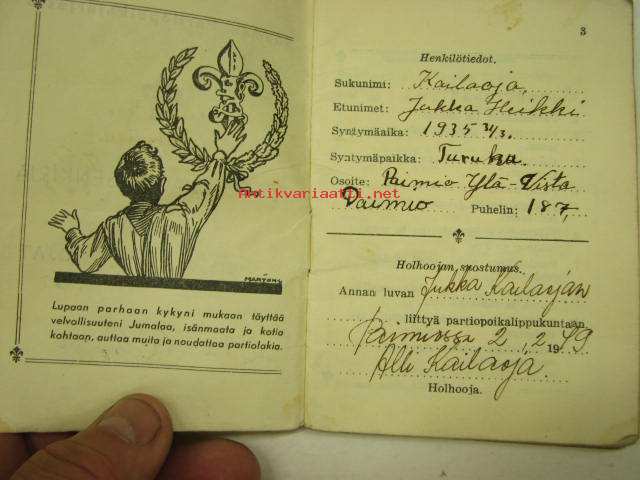 MARTONS
Lupaan parhaan kykyni mukaan täyttää
velvollisuuteni Jumalaa, isänmaata ja kotia
kohtaan, auttaa muita ja noudattaa partiolakia.
antikvariaatti.net
3
Henkilötiedot.
Sukunimi: Kailaoja.
Etunimet: Jukka Heikki
Syntymäaika: 1935
Syntymäpaikka: Turussa.
Osoite: Paimio Ylä-Vista
Paimio Puhelin: 187,
Holhoojan suostumus.
Annan luvan Jukka Kailaojan
liittyä partiopoikalippukuntaan.
Paimiossa 2/2 1949
Alli Kailaoja.
Holhooja.